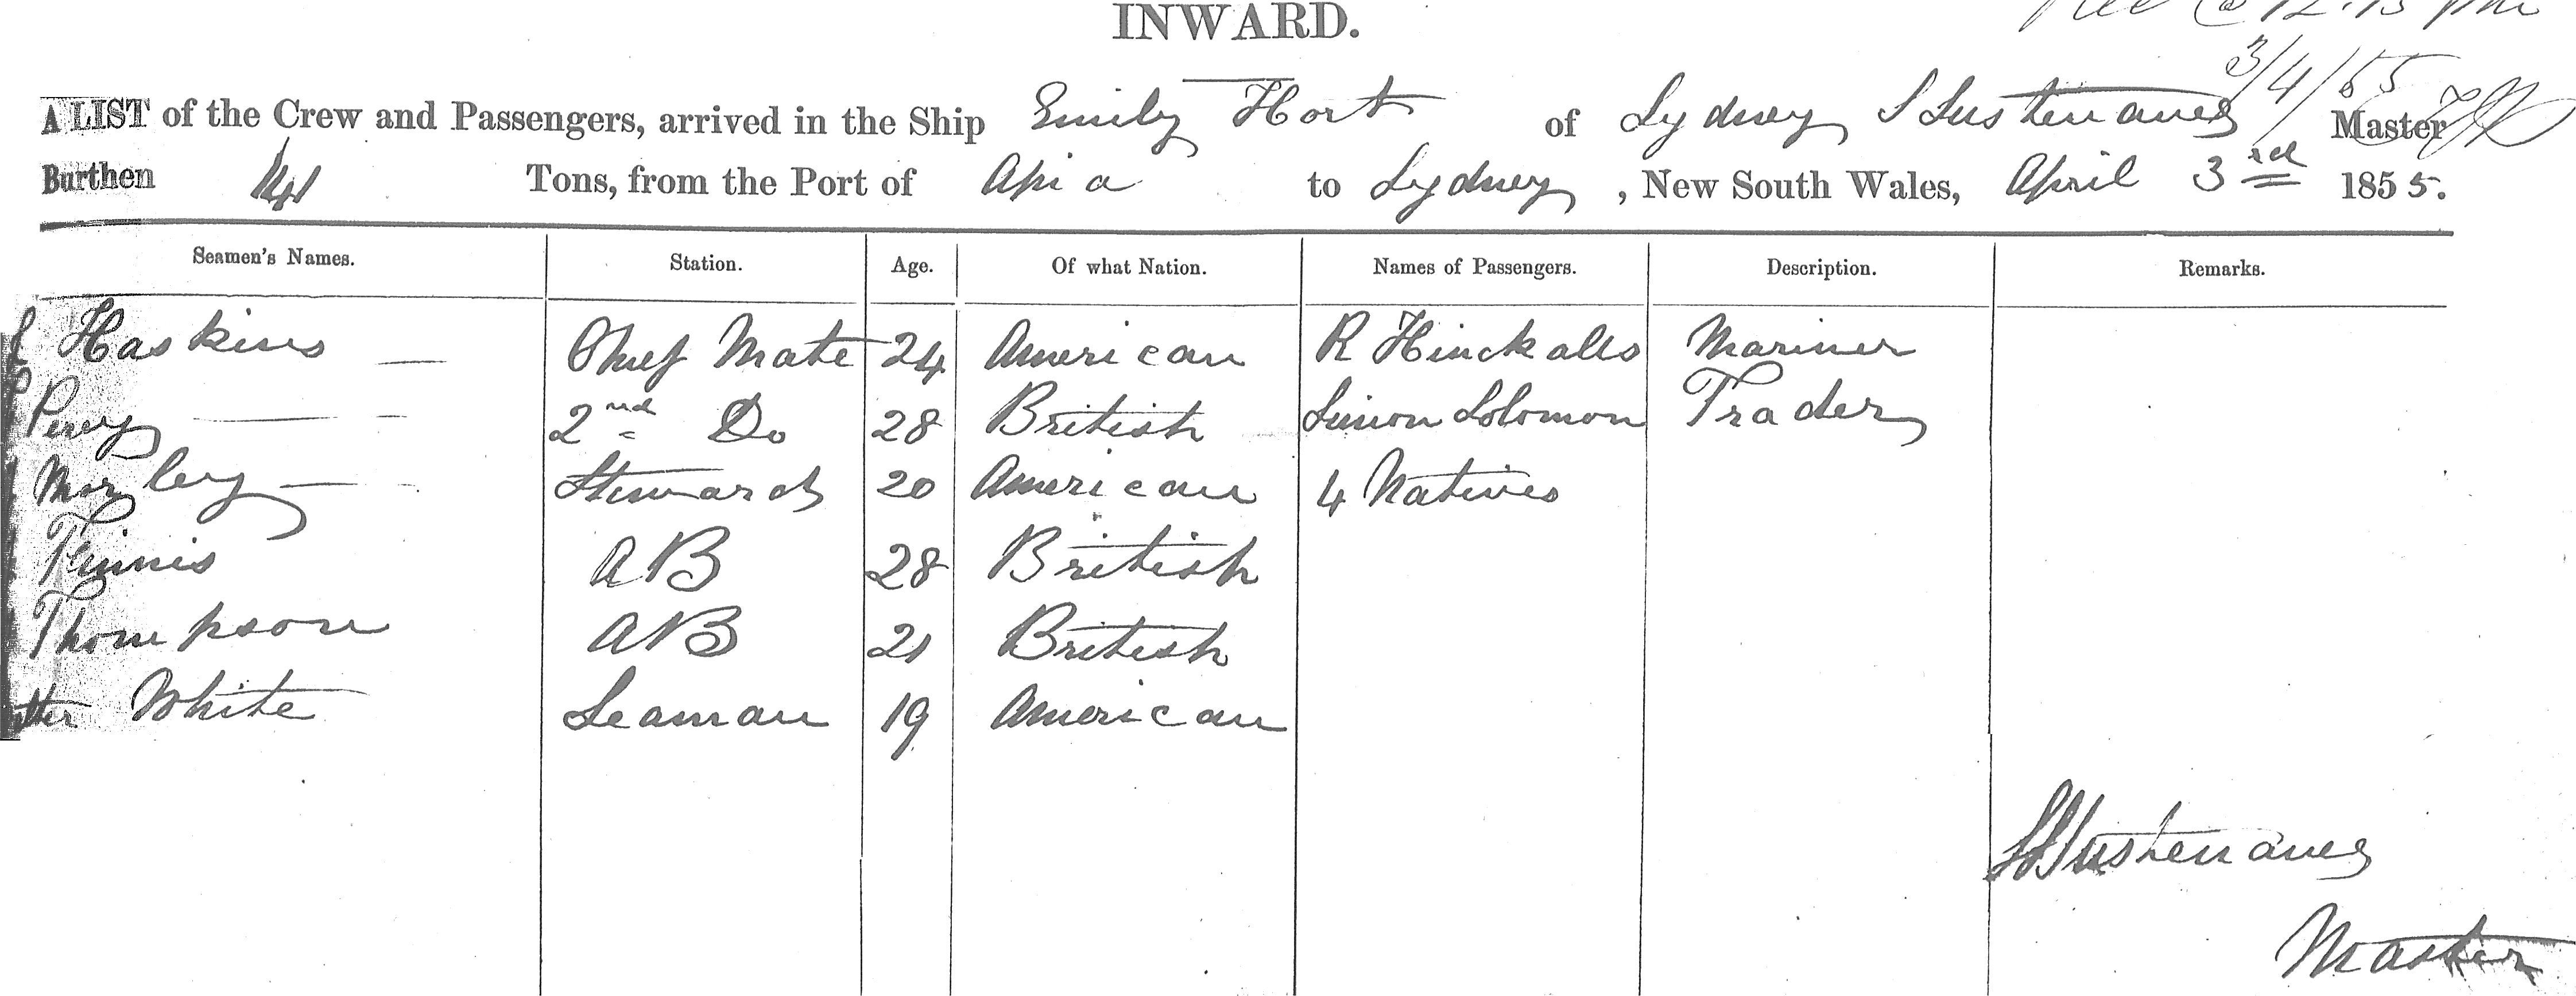 INWARD.
12.15 pm
3/4/55
A LIST of the Crew and Passengers, arrived in the Ship Emily Hort of Sydney Master
Burthen 141 Tons, from the Port of Apia to Sydney, New South Wales, April 3rd 1855.
Seamen's Names. Station. Age. Of what Nation. Names of Passengers. Description. Remarks.
Haskins — Chief Mate 24 American R Hinckalls Mariner
Perry — 2nd Do 28 British Simon Solomon Trader
Morley — Steward 20 American 4 Natives
AB 28 British
Thompson AB 21 British
White Seaman 19 American
Master